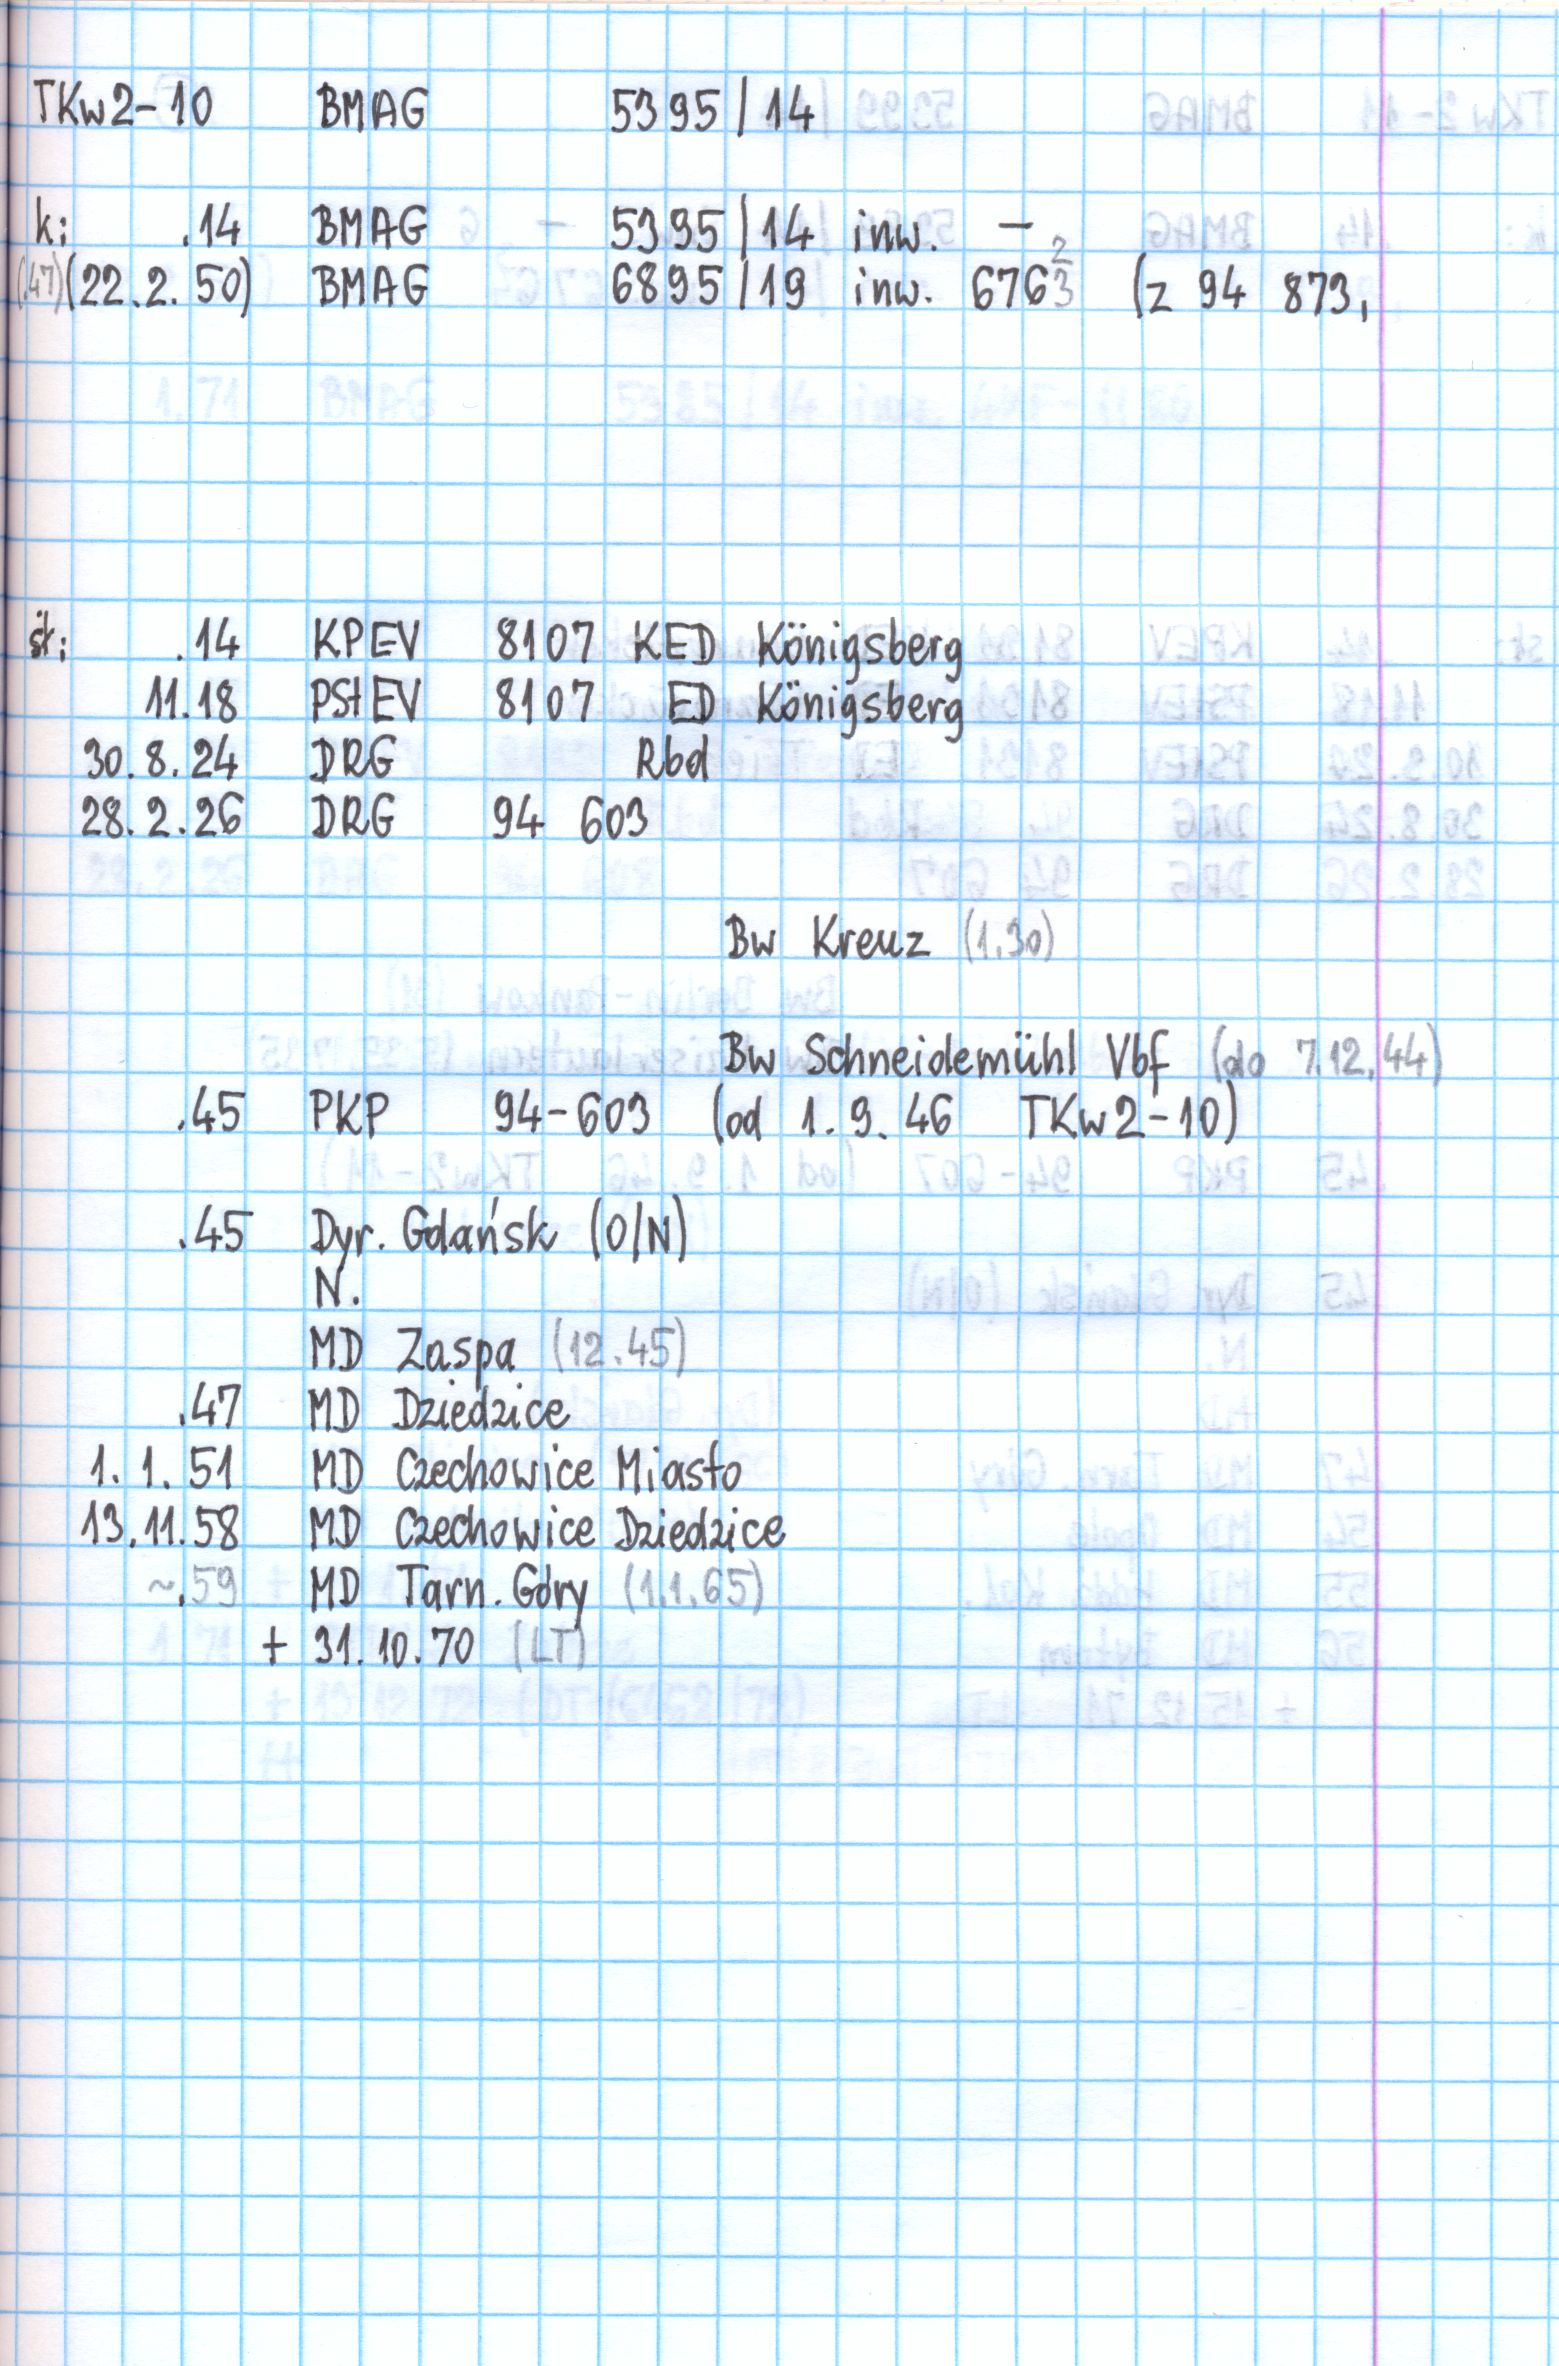 TKw2-10 BMAG 5395/14
k: .14 BMAG 5395/14 inw. -
(.47) (22.2.50) BMAG 6895/19 inw. 6763 2 (z 94 873,
st: .14 KPEV 8107 KED Königsberg
11.18 PStEV 8107 ED Königsberg
30.8.24 DRG Rbd
28.2.26 DRG 94 603
Bw Kreuz (1.30)
Bw Schneidemühl Vbf (do 7.12.44)
.45 PKP 94-603 (od 1.9.46 TKw2-10)
.45 Dyr. Gdańsk (O/N)
N.
MD Zaspa (12.45)
.47 MD Dziedzice
1.1.51 MD Czechowice Miasto
13.11.58 MD Czechowice Dziedzice
~.59 MD Tarn. Góry (1.1.65)
+ 31.10.70 (LT)